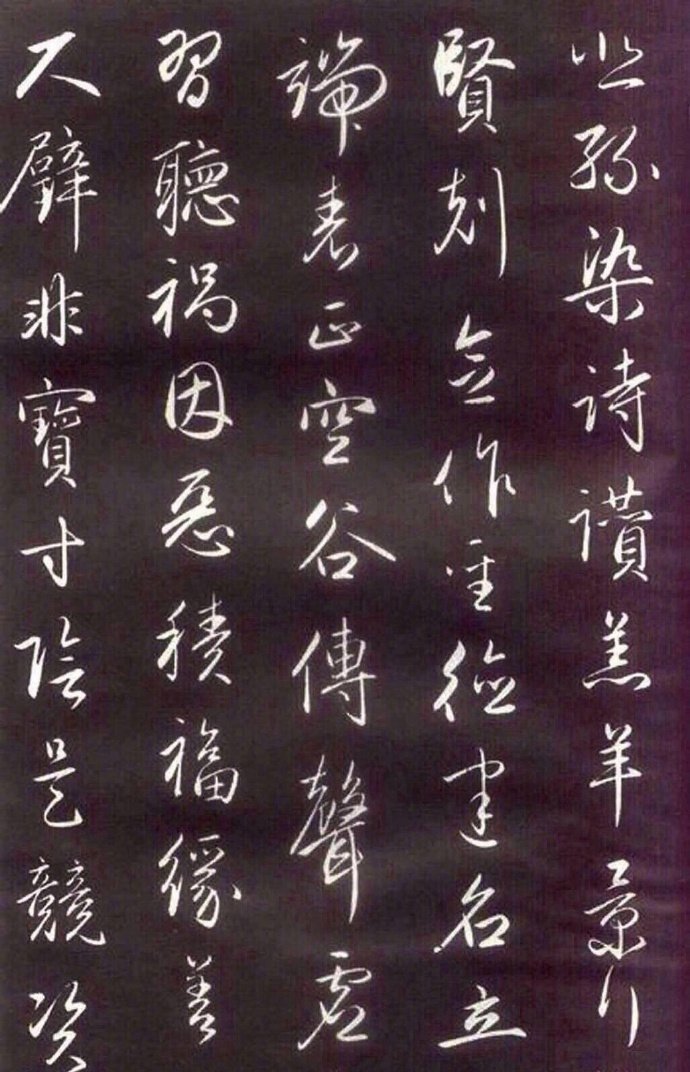 絲染詩讚羔羊景行
賢剋念作聖德建名立
端表正空谷傳聲虛
習聽禍因惡積福緣善
尺璧非寶寸陰是競資